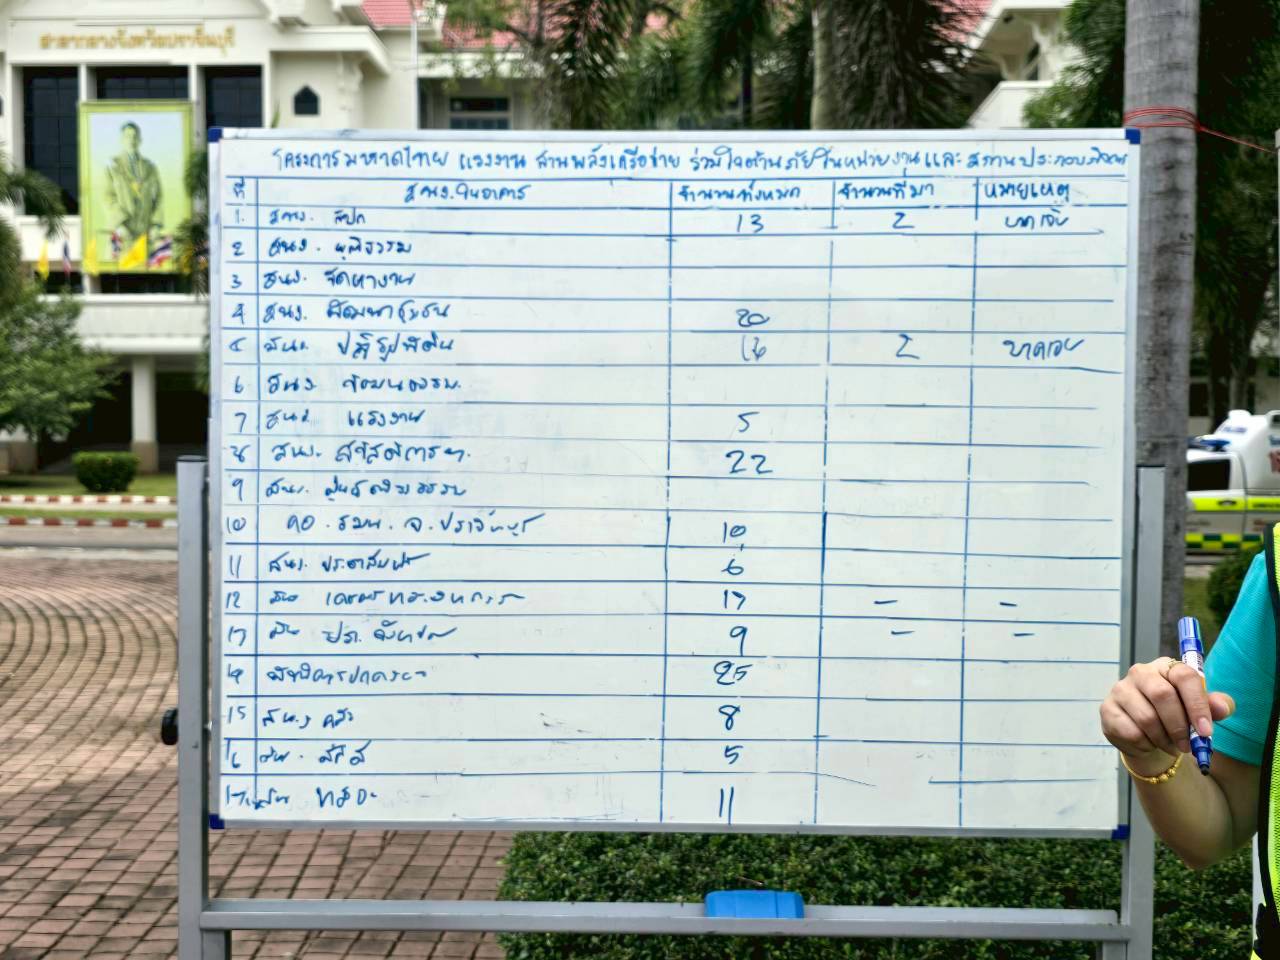 ศาลากลางจังหวัดปราจีนบุรี
โครงการมหาดไทย แรงงาน สานพลังเครือข่าย ร่วมใจต้านภัยในหน่วยงานและสถานประกอบกิจการ
ที่ สนง.ในอาคาร จำนวนทั้งหมด จำนวนที่มา หมายเหตุ
1. สนง. สปก 13 2 บาดเจ็บ
2 สนง. ยุติธรรม
3 สนง. จัดหางาน
4 สนง. พัฒนาชุมชน 20
5 สนง. ปฏิรูปที่ดิน 16 2 บาดเจ็บ
6 สนง. วัฒนธรรม
7 สนง. แรงงาน 5
8 สนง. สวัสดิการฯ 22
9 สนง.
10 กอ.รมน. จ.ปราจีนบุรี 10
11 สนง. ประชาสัมพันธ์ 6
12 17 - -
13 9 - -
14 25
15 สนง 8
16 5
17 11